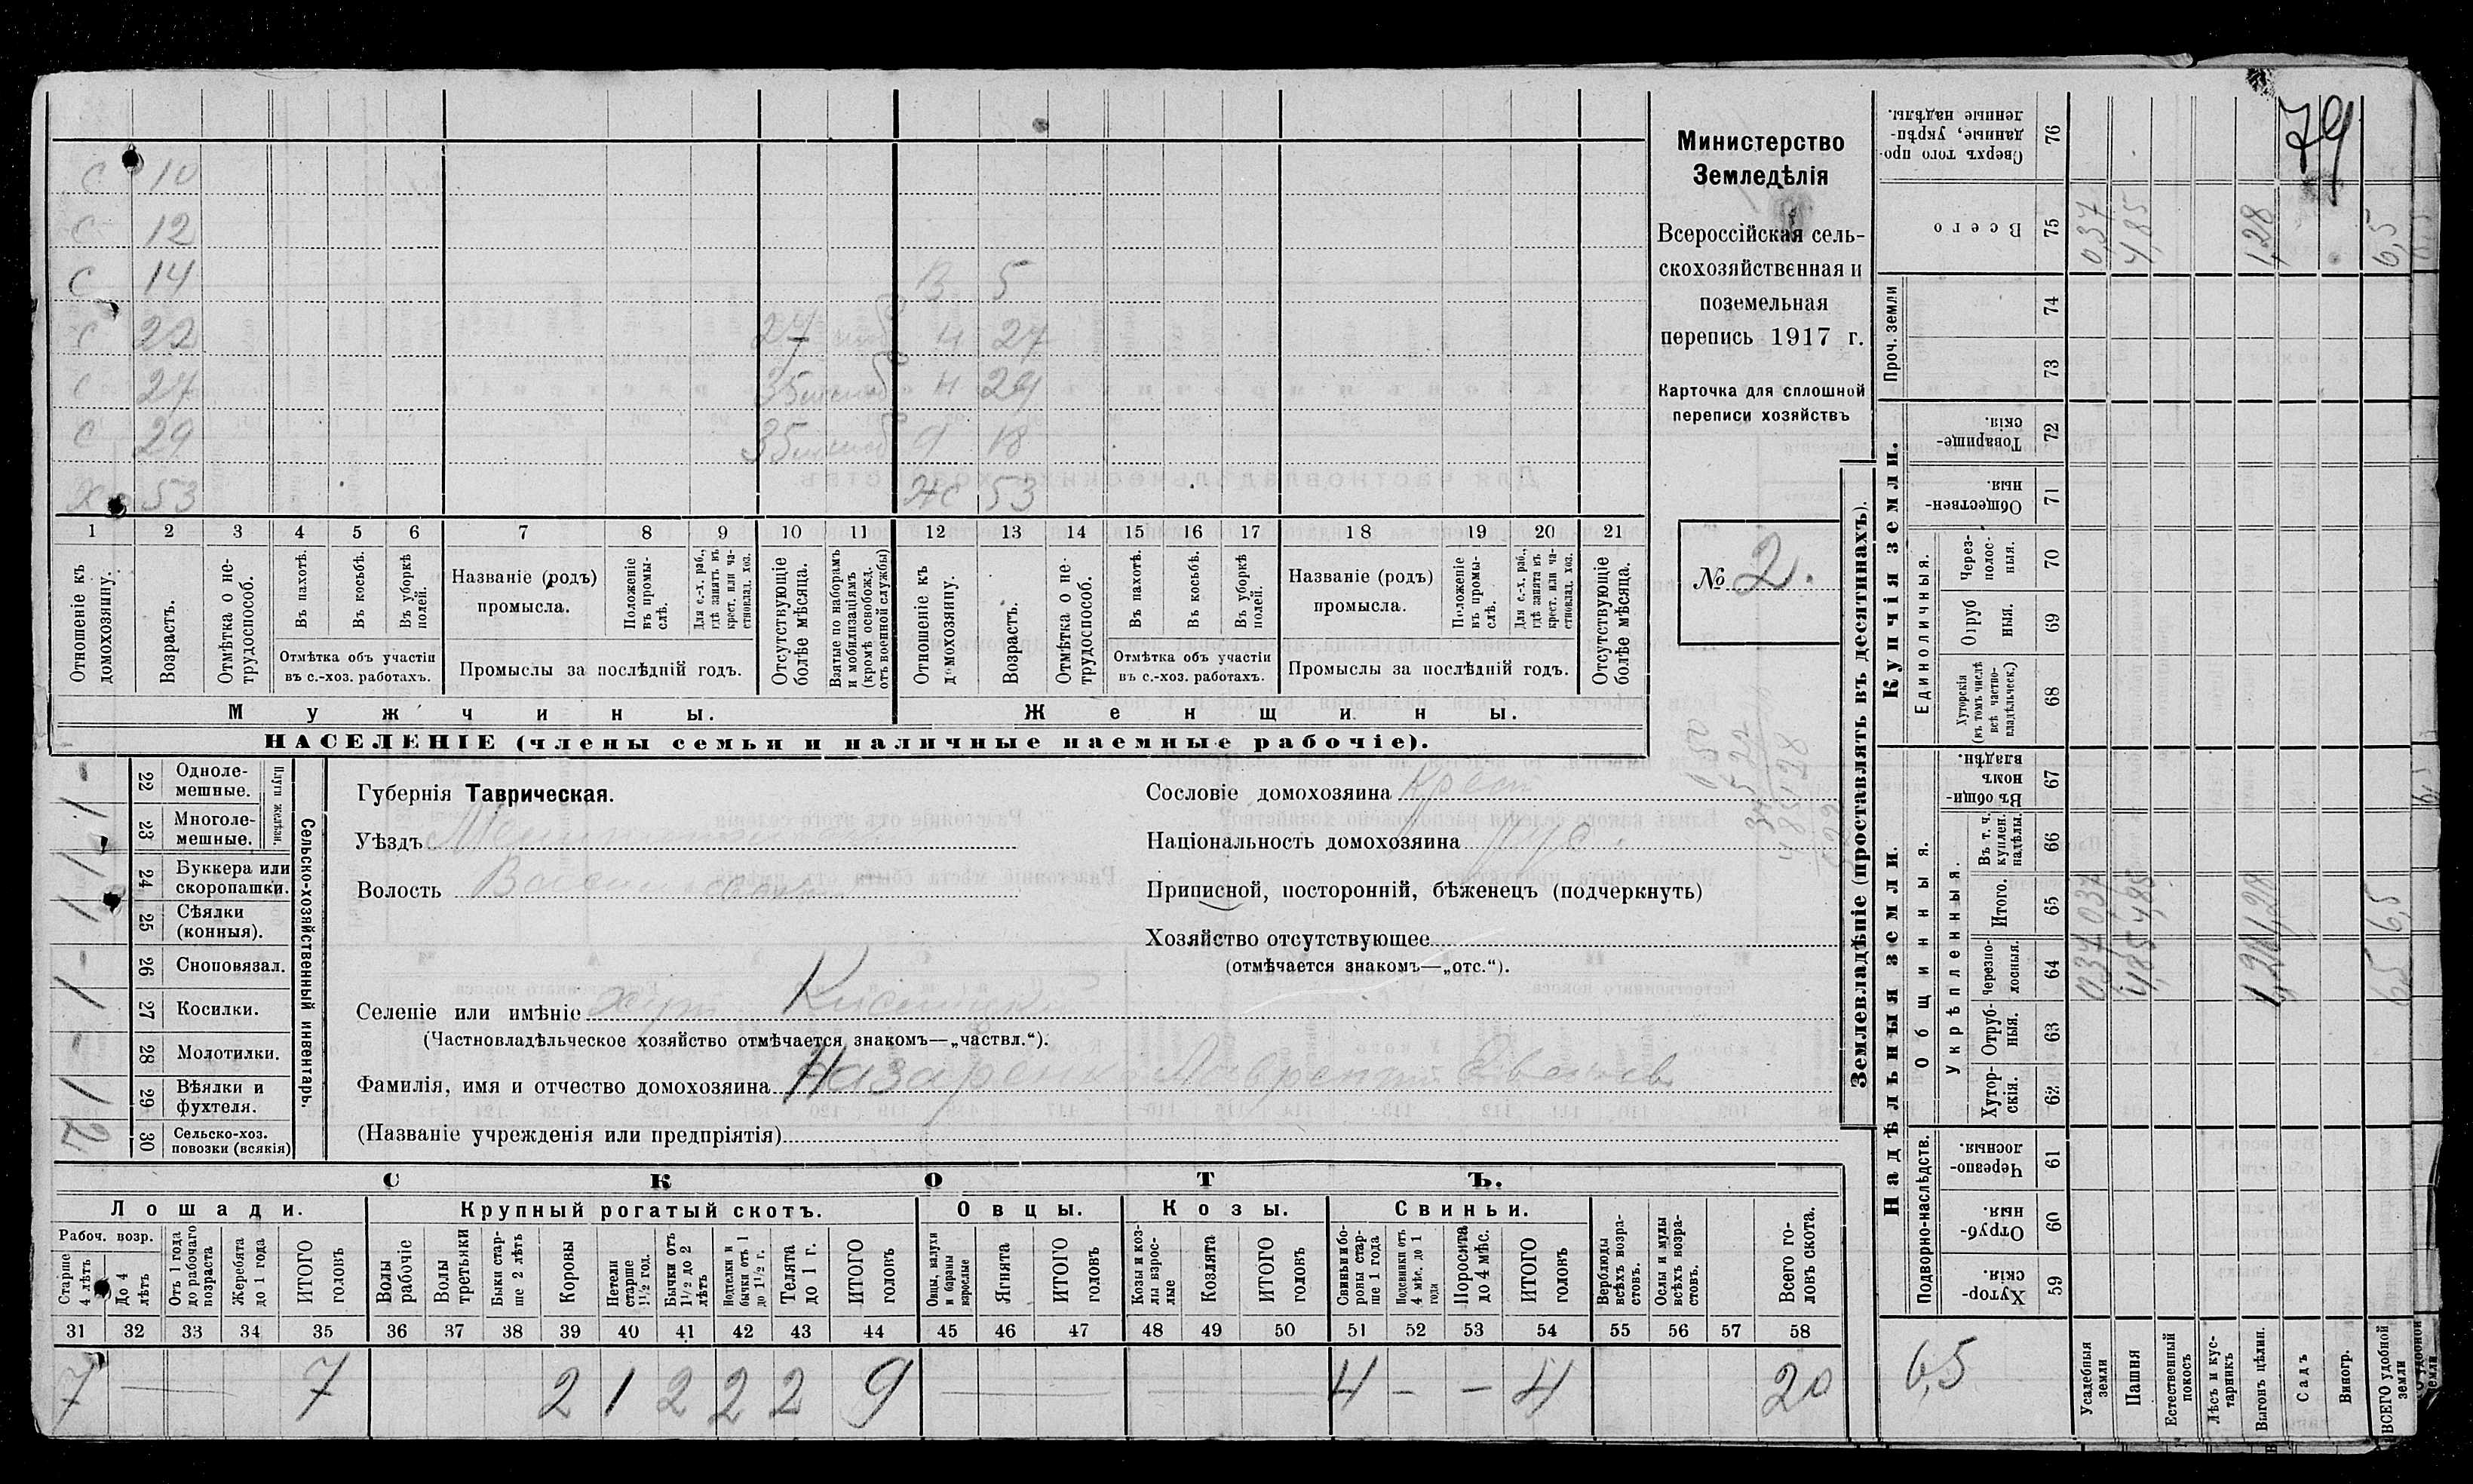 79
Министерство
Земледѣлія
Всероссійская сель-
скохозяйственная и
поземельная
перепись 1917 г.
Карточка для сплошной
переписи хозяйствъ
№ 2.
С 10
С 12
С 14 В 5
С 22 27 Н 27
С 27 35 Н 29
С 29 35 Д 18
Хо 53 Ж 53
1 2 3 4 5 6 7 8 9 10 11 12 13 14 15 16 17 18 19 20 21
Отношеніе къ домохозяину.
Возрастъ.
Отмѣтка о не-трудоспособ.
Въ пахотѣ.
Въ косьбѣ.
Въ уборкѣ полей.
Отмѣтка объ участіи
въ с.-хоз. работахъ.
Названіе (родъ)
промысла.
Положеніе въ промы-слѣ.
Для с.-х. раб., гдѣ занятъ въ крест. или ча-стновлад. хоз.
Промыслы за послѣдній годъ.
Отсутствующіе болѣе мѣсяца.
Взятые по наборамъ и мобилизаціямъ (кромѣ освобожд. отъ военной службы)
Отношеніе къ домохозяину.
Возрастъ.
Отмѣтка о не-трудоспособ.
Въ пахотѣ.
Въ косьбѣ.
Въ уборкѣ полей.
Отмѣтка объ участіи
въ с.-хоз. работахъ.
Названіе (родъ)
промысла.
Положеніе въ промы-слѣ.
Для с.-х. раб., гдѣ занята въ крест. или ча-стновлад. хоз.
Промыслы за послѣдній годъ.
Отсутствующіе болѣе мѣсяца.
Мужчины.
Женщины.
НАСЕЛЕНІЕ (члены семьи и наличные наемные рабочіе).
- 22 Одноле-мешные.
1 23 Многоле-мешные.
Плуги желѣзн.
1 24 Буккера или скоропашки.
1 25 Сѣялки (конныя).
- 26 Сноповязал.
1 27 Косилки.
- 28 Молотилки.
1 29 Вѣялки и фухтеля.
2 30 Сельско-хоз. повозки (всякія)
Сельско-хозяйственный инвентарь.
Губернія Таврическая.
Уѣздъ
Волость
Селеніе или имѣніе хут.
(Частновладѣльческое хозяйство отмѣчается знакомъ—„частвл.“).
Фамилія, имя и отчество домохозяина Назаренко Лаврентій
(Названіе учрежденія или предпріятія)
Сословіе домохозяина Крест
Національность домохозяина рус.
Приписной, посторонній, бѣженецъ (подчеркнуть)
Хозяйство отсутствующее
(отмѣчается знакомъ—„отс.“).
СКОТЪ.
Лошади. Крупный рогатый скотъ. Овцы. Козы. Свиньи.
Рабоч. возр.
Старше 4 лѣтъ
До 4 лѣтъ
Отъ 1 года до рабочаго возраста
Жеребята до 1 года
ИТОГО головъ
Волы рабочіе
Волы третьяки
Быки стар-ше 2 лѣтъ
Коровы
Нетели старше 1½ год.
Бычки отъ 1½ до 2 лѣтъ
Нодтелки и бычки отъ 1 до 1½ г.
Телята до 1 г.
ИТОГО головъ
Овцы, валухи и бараны взрослые
Ягнята
ИТОГО головъ
Козы и коз-лы взрос-лые
Козлята
ИТОГО головъ
Свиньи и бо-ровы стар-ше 1 года
Подсвинки отъ 4 мѣс. до 1 года
Поросята до 4 мѣс.
ИТОГО головъ
Верблюды всѣхъ возра-стовъ.
Ослы и мулы всѣхъ возра-стовъ.
Всего го-ловъ скота.
31 32 33 34 35 36 37 38 39 40 41 42 43 44 45 46 47 48 49 50 51 52 53 54 55 56 57 58
7 — 7 2 1 2 2 2 9 — — 4 - - 4 20
Землевладѣніе (проставлять въ десятинахъ).
Купчія земли.
Надѣльныя земли.
Сверхъ того про-данные, укрѣп-ленные надѣлы. 76
Всего 75 0,37 4,85 1,28 6,5
Проч. земли 74 73
Товарище-скія 72
Обществен-ныя 71
Единоличныя.
Черезполос-ныя. 70
Отруб ныя. 69
Хуторскія (въ томъ числѣ всѣ частно-владѣльческ.) 68
Общинныя.
Въ общин-номъ владѣн. 67
Укрѣпленныя.
Въ т. ч. куплен. надѣлы. 66
Итого. 65 0,37 4,85 1,28 6,5
Черезпо-лосныя. 64 0,37 4,85 1,28 6,5
Отруб-ныя. 63
Хутор-скія. 62
Подворно-наслѣдств.
Черезпо-лосныя 61
Отруб-ныя. 60
Хутор-скія. 59
6,5
Усадебныя земли
Пашня
Естественный покосъ
Лѣсъ и кус-тарникъ
Выгонъ цѣлин.
Садъ
Виногр.
ВСЕГО удобной земли